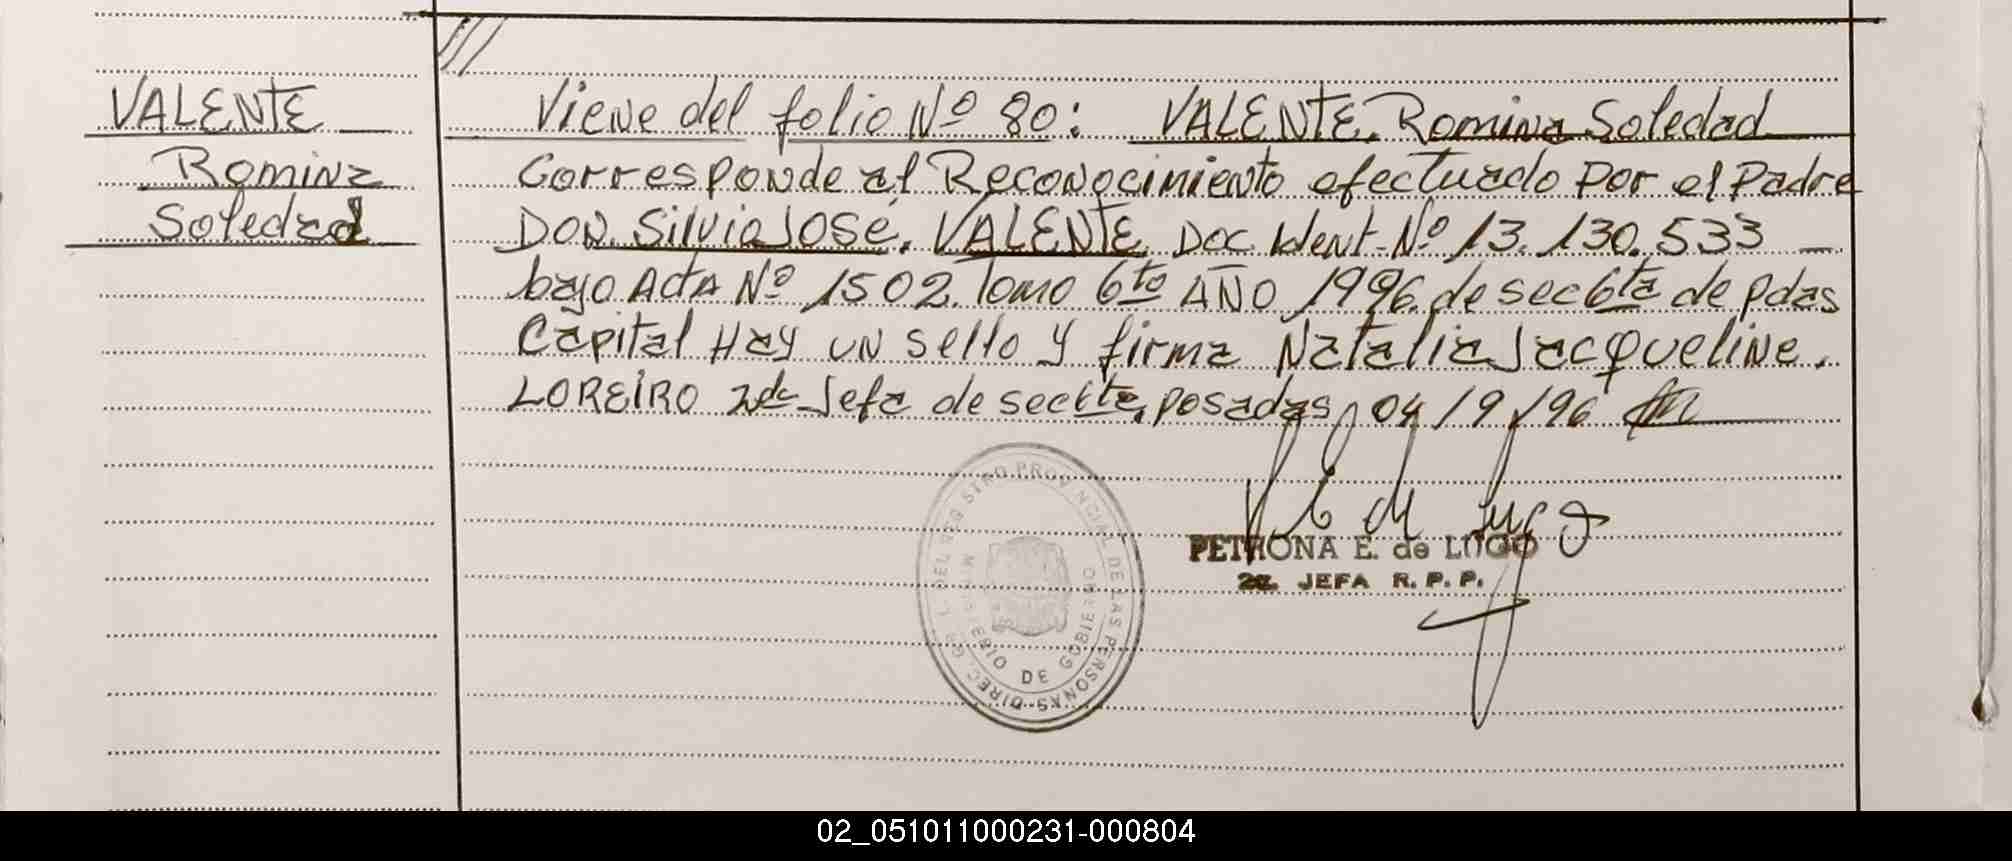 VALENTE
Romina
Soledad
///
Viene del folio Nº 80: VALENTE, Romina Soledad
Corresponde al Reconocimiento efectuado por el Padre
DON. Silvio José, VALENTE, Doc Ident. Nº 13.130.533 —
bajo Acta Nº 1502. Tomo 6to AÑO 1996. de sec 6ta de pdas
Capital Hay un sello y firma Natalia Jacqueline.
LOREIRO 2da Jefa de sec 6ta, posadas, 04/9/96
DIREC. GRL. DEL REGISTRO PROVINCIAL DE LAS PERSONAS
MINISTERIO DE GOBIERNO
PETRONA E. de LUGO
2a. JEFA R. P. P.
02_051011000231-000804